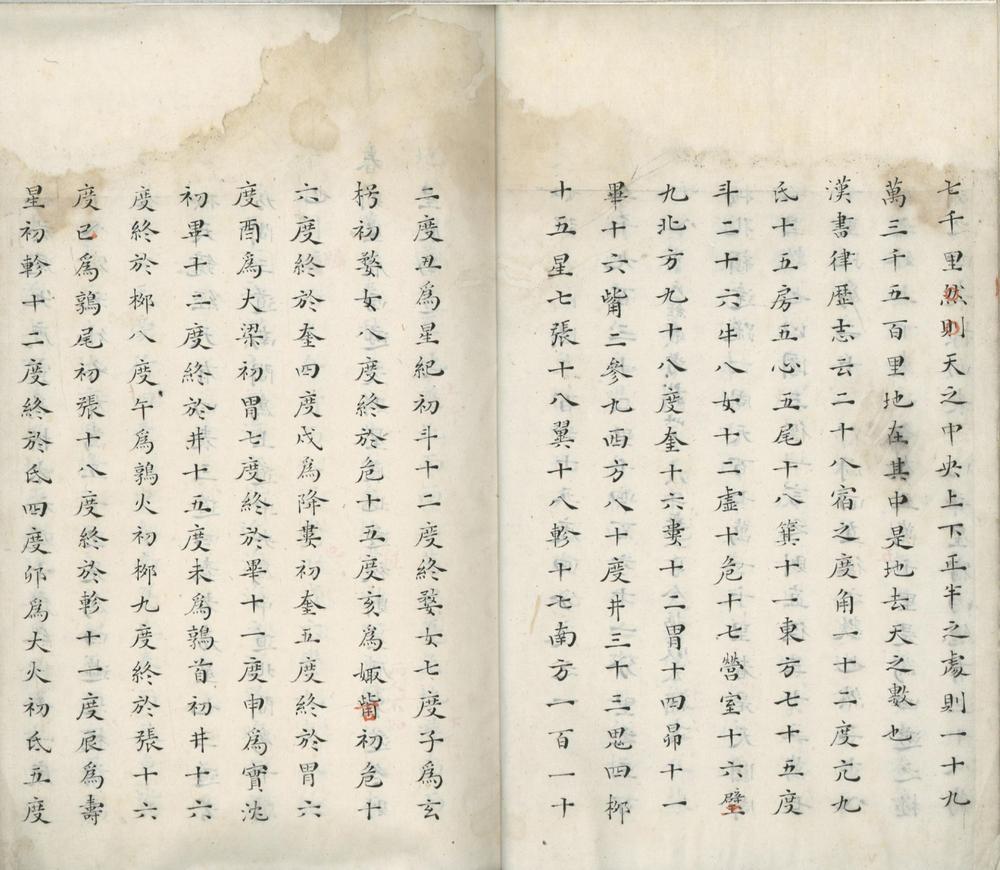 七千里然則天之中央上下正半之處則一十九
萬三千五百里地在其中是地去天之數也
漢書律歷志云二十八宿之度角一十二度亢九
氐十五房五心五尾十八箕十一東方七十五度
斗二十六牛八女十二虛十危十七營室十六壁
九北方九十八度奎十六婁十二胃十四昴十一
畢十六觜三參九西方八十度井三十三鬼四柳
十五星七張十八翼十八軫十七南方一百一十
二度丑爲星紀初斗十二度終婺女七度子爲玄
枵初婺女八度終於危十五度亥爲娵觜初危十
六度終於奎四度戌爲降婁初奎五度終於胃六
度酉爲大梁初胃七度終於畢十一度申爲實沈
初畢十三度終於井十五度未爲鶉首初井十六
度終於柳八度午爲鶉火初柳九度終於張十六
度巳爲鶉尾初張十八度終於軫十一度辰爲壽
星初軫十二度終於氐四度卯爲大火初氐五度